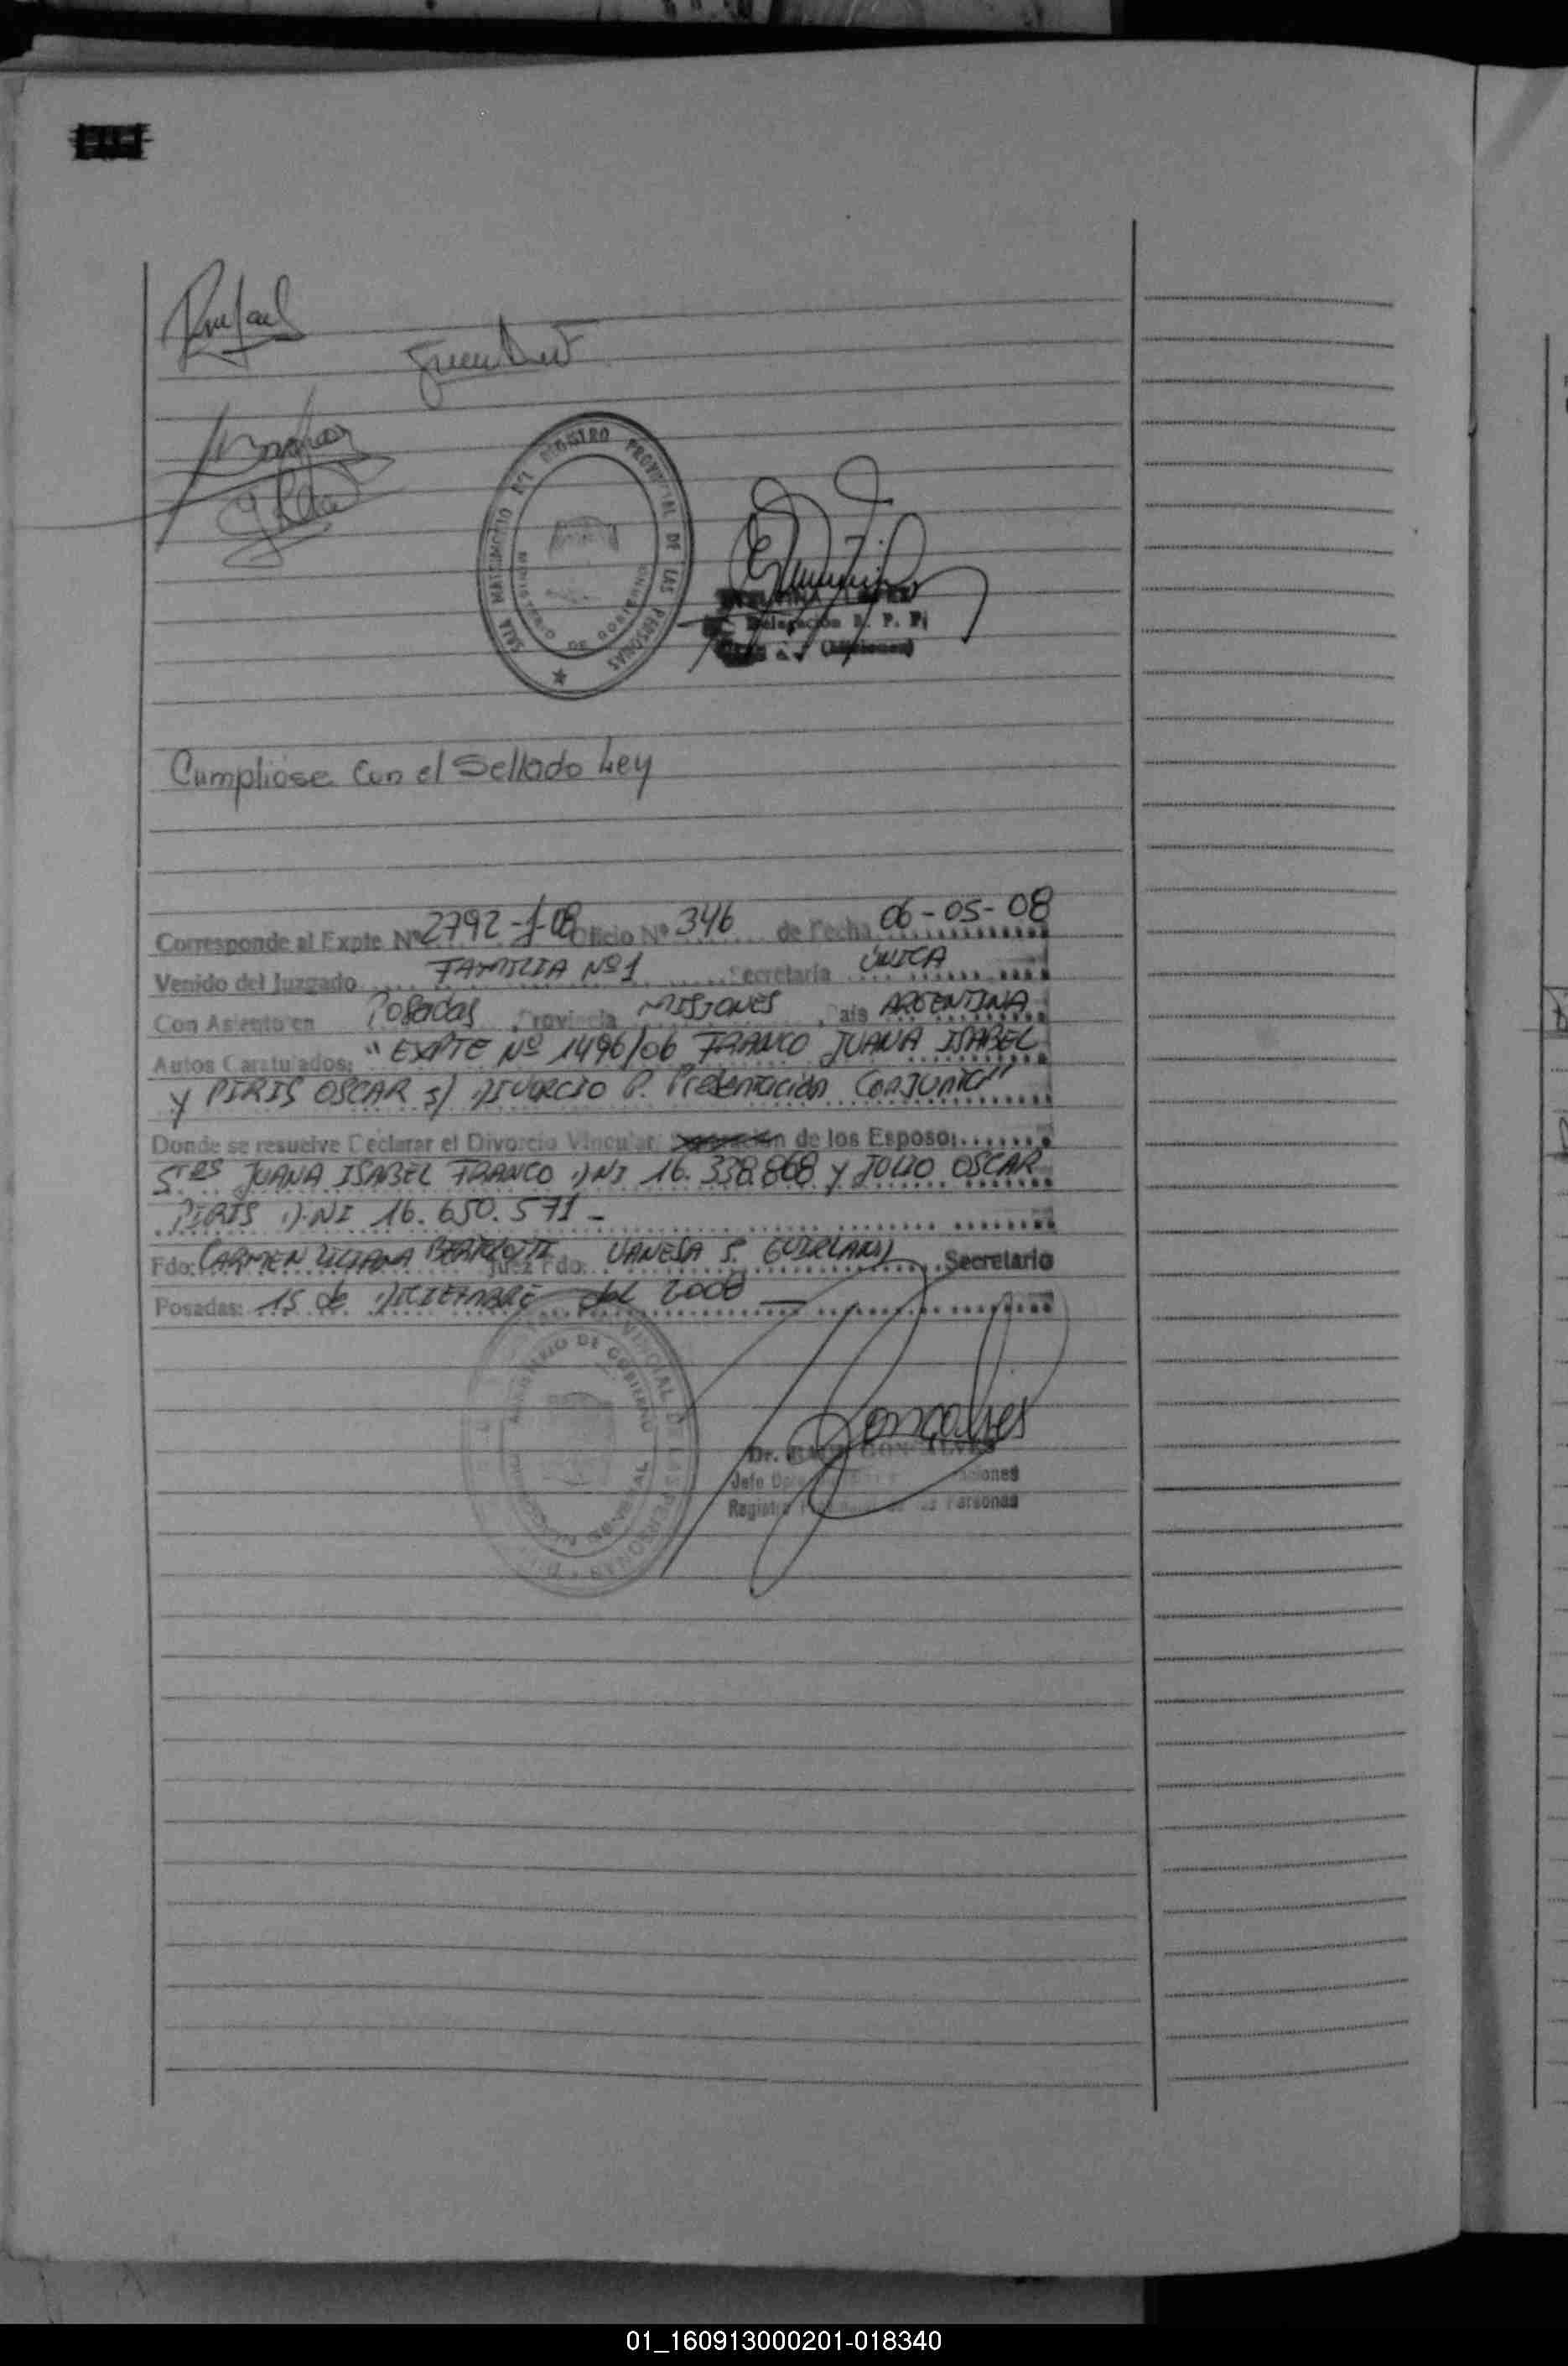 Rafael
SALA MATRIMONIO DEL REGISTRO PROVINCIAL DE LAS PERSONAS
DE GOBIERNO
LOPEZ
Delegación R. P. P.
(Misiones)
Cumpliose Con el Sellado Ley
Corresponde al Expte Nº 2792-J-08 Oficio Nº 346 de Fecha 06-05-08
Venido del Juzgado FAMILIA Nº1 Secretaria ÚNICA
Con Asiento en Posadas, Provincia MISIONES, Pais ARGENTINA
Autos Caratulados: "EXPTE Nº 1496/06 FRANCO JUANA ISABEL
y PIRIS OSCAR s/ DIVORCIO P. Presentación Conjunta"
Donde se resuelve Declarar el Divorcio Vincular de los Esposo:
Sres JUANA ISABEL FRANCO DNI 16.338.868 y JULIO OSCAR
PIRIS D.NI 16.650.571 -
Fdo: CARMEN LILIANA Juez Fdo: VANESA S. Secretario
Posadas: 15 de DICIEMBRE del 2008
MINISTERIO DE GOBIERNO
DE LAS PERSONAS
Goncalves
Dr. GONCALVES
Jefe
Registro de las Personas
01_160913000201-018340